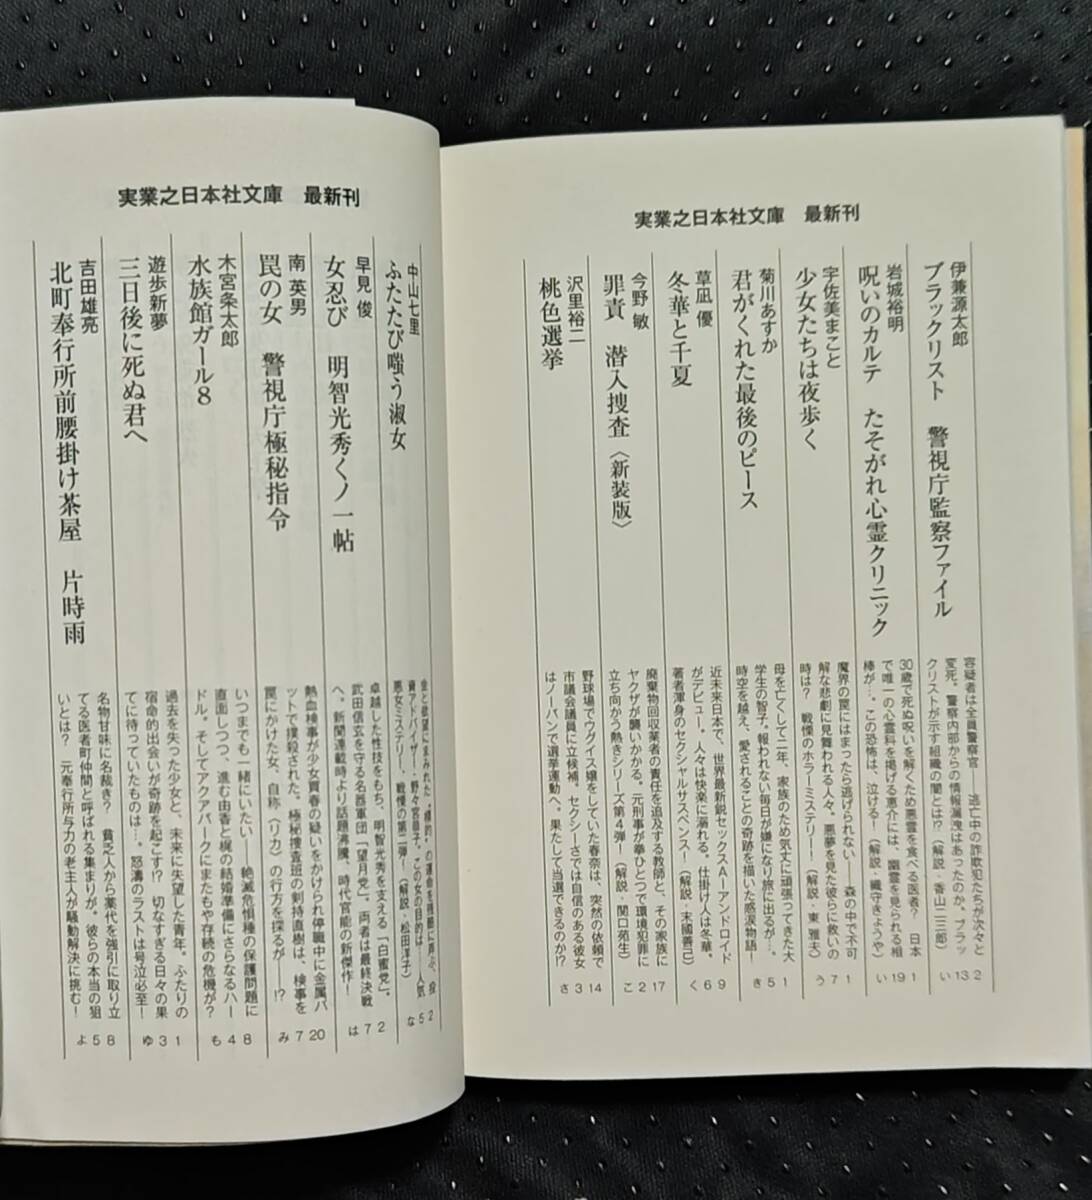 実業之日本社文庫　最新刊
伊兼源太郎
ブラックリスト　警視庁監察ファイル
容疑者は全員警察官――逃亡中の詐欺犯たちが次々と
変死。警察内部からの情報漏洩はあったのか。ブラッ
クリストが示す組織の闇とは!?（解説・香山二三郎）
い13 2
岩城裕明
呪いのカルテ　たそがれ心霊クリニック
30歳で死ぬ呪いを解くため悪霊を食べる医者？　日本
で唯一の心霊科を掲げる恵介には、幽霊を見られる相
棒が…。この恐怖は、泣ける！（解説・織守きょうや）
い19 1
宇佐美まこと
少女たちは夜歩く
魔界の罠にはまったら逃げられない――森の中で不可
解な悲劇に見舞われる人々。悪夢を見た彼らに救いの
時は？　戦慄のホラーミステリー！（解説・東 雅夫）
う7 1
菊川あすか
君がくれた最後のピース
母を亡くして二年、家族のため気丈に頑張ってきた大
学生の智子。報われない毎日が嫌になり旅に出るが…。
時空を越え、愛されることの奇跡を描いた感涙物語！
き5 1
草凪 優
冬華と千夏
近未来日本で、世界最新鋭セックスAーアンドロイド
がデビュー。人々は快楽に溺れる。仕掛け人は冬華。
著者渾身のセクシャルサスペンス！（解説・末國善己）
く6 9
今野 敏
罪責　潜入捜査〈新装版〉
廃棄物回収業者の責任を追及する教師と、その家族に
ヤクザが襲いかかる。元刑事が拳ひとつで環境犯罪に
立ち向かう熱きシリーズ第4弾！（解説・関口苑生）
こ2 17
沢里裕二
桃色選挙
野球場でウグイス嬢をしていた春奈は、突然の依頼で
市議会議員に立候補。セクシーさでは自信のある彼女
はノーパンで選挙運動へ。果たして当選できるのか!?
さ3 14
実業之日本社文庫　最新刊
中山七里
ふたたび嗤う淑女
金と欲望にまみれた“標的”の運命を残酷に弄ぶ、投
資アドバイザー・野々宮恭子。この女の目的は――人気
悪女ミステリー、戦慄の第二弾！（解説・松田洋子）
な5 2
早見 俊
女忍び　明智光秀くノ一帖
卓越した性技をもち、明智光秀を支える「白蜜党」。
武田信玄を守る名器軍団「望月党」。両者は最終決戦
へ。新聞連載時より話題沸騰、時代官能の新傑作！
は7 2
南 英男
罠の女　警視庁極秘指令
熱血検事が少女買春の疑いをかけられ停職中に金属バ
ットで撲殺された。極秘捜査班の剣持直樹は、検事を
罠にかけた女、自称〈リカ〉の行方を探るが――!?
み7 20
木宮条太郎
水族館ガール8
いつまでも一緒にいたい――絶滅危惧種の保護問題に
直面しつつ、進む由香と梶の結婚準備にさらなるハー
ドル。そしてアクアパークにまたもや存続の危機が？
も4 8
遊歩新夢
三日後に死ぬ君へ
過去を失った少女と、未来に失望した青年。ふたりの
宿命的出会いが奇跡を起こす!?　切なすぎる日々の果
てに待っていたものは…。怒濤のラストは号泣必至！
ゆ3 1
吉田雄亮
北町奉行所前腰掛け茶屋　片時雨
名物甘味に名裁き？　貧乏人から薬代を強引に取り立
てる医者町仲間と呼ばれる集まりが。彼らの本当の狙
いとは？　元奉行所与力の老主人が騒動解決に挑む！
よ5 8